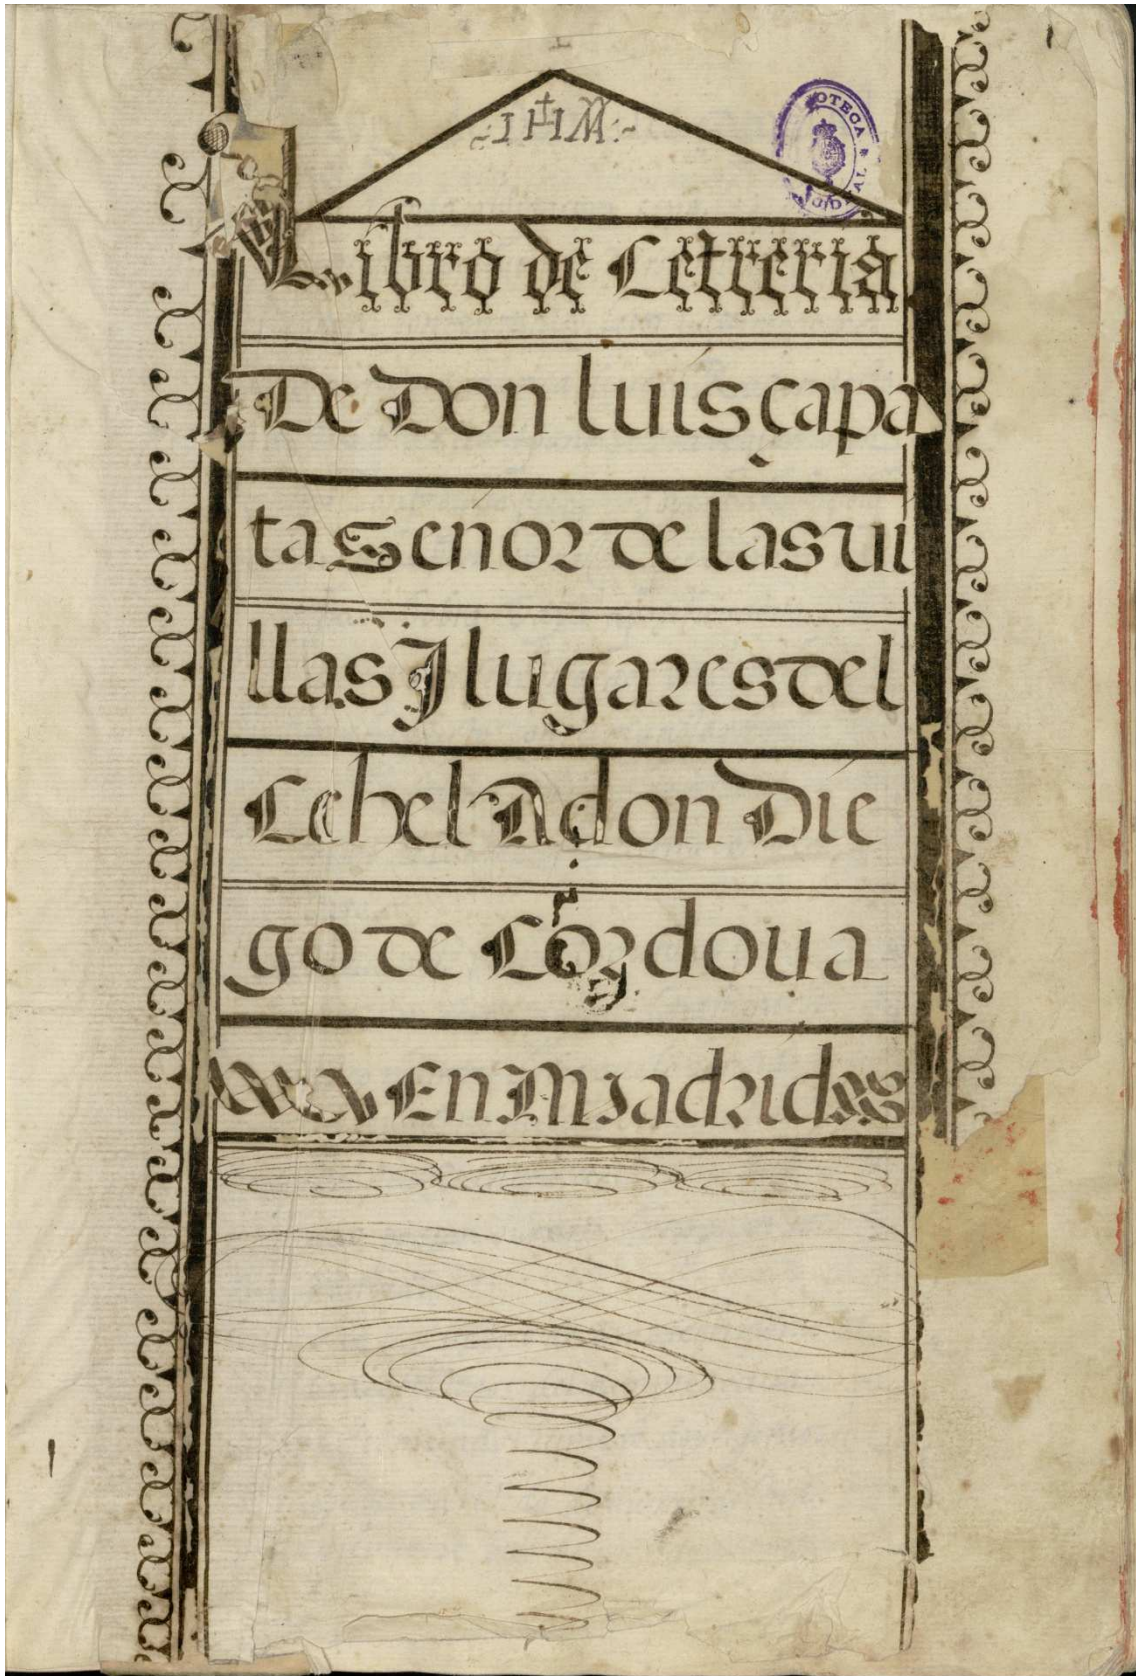 IHM
Libro de Cetreria
De Don luis çapa
ta Señor de las ui
llas J lugares del
Cehel A don Die
go de Cordoua
En Madrid